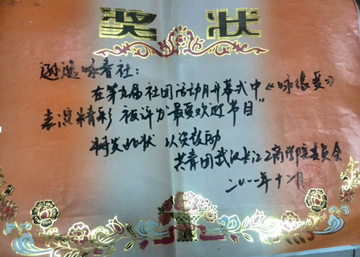 奖状
咏春社：
在第九届社团活动月开幕式中《咏缘爱》
表演精彩 被评为“最受欢迎节目”
特发此状 以资鼓励
共青团武汉长江工商学院委员会
二〇一一年十二月